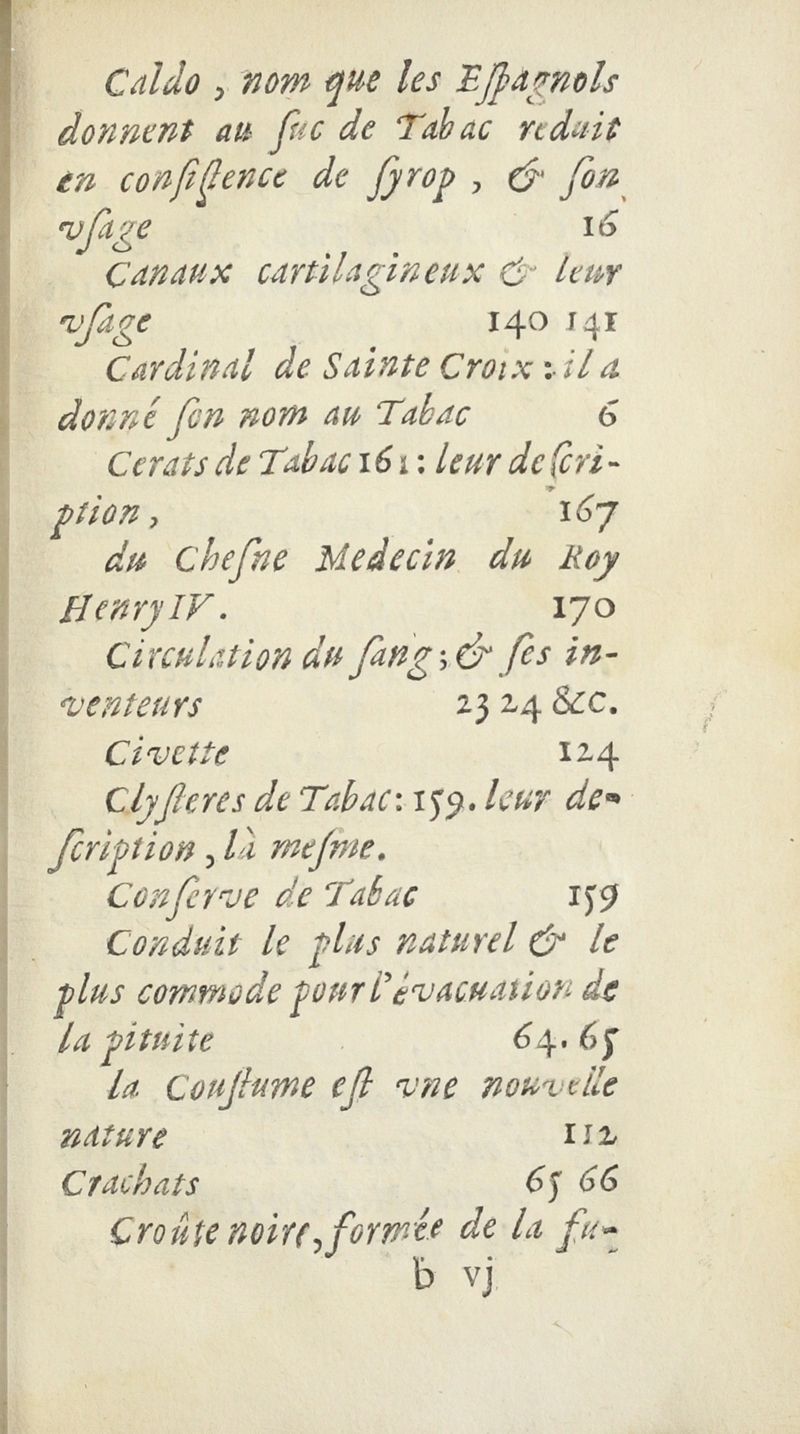 Caldo , nom que les Eſpagnols
donnent au ſuc de Tabac reduit
en conſiſtence de ſyrop , & ſon
vſage 16
Canaux cartilagineux & leur
vſage 140 141
Cardinal de Sainte Croix : il a
donné ſon nom au Tabac 6
Cerats de Tabac 161 : leur deſcri-
ption , 167
du Cheſne Medecin du Roy
Henry IV. 170
Circulation du ſang ; & ſes in-
venteurs 23 24 &c.
Civette 124
Clyſteres de Tabac : 159. leur de-
ſcription , là meſme.
Conſerve de Tabac 159
Conduit le plus naturel & le
plus commode pour l'évacuation de
la pituite 64. 65
la Couſtume eſt vne nouvelle
nature 112
Crachats 65 66
Croûte noire, formée de la fu-
b vj